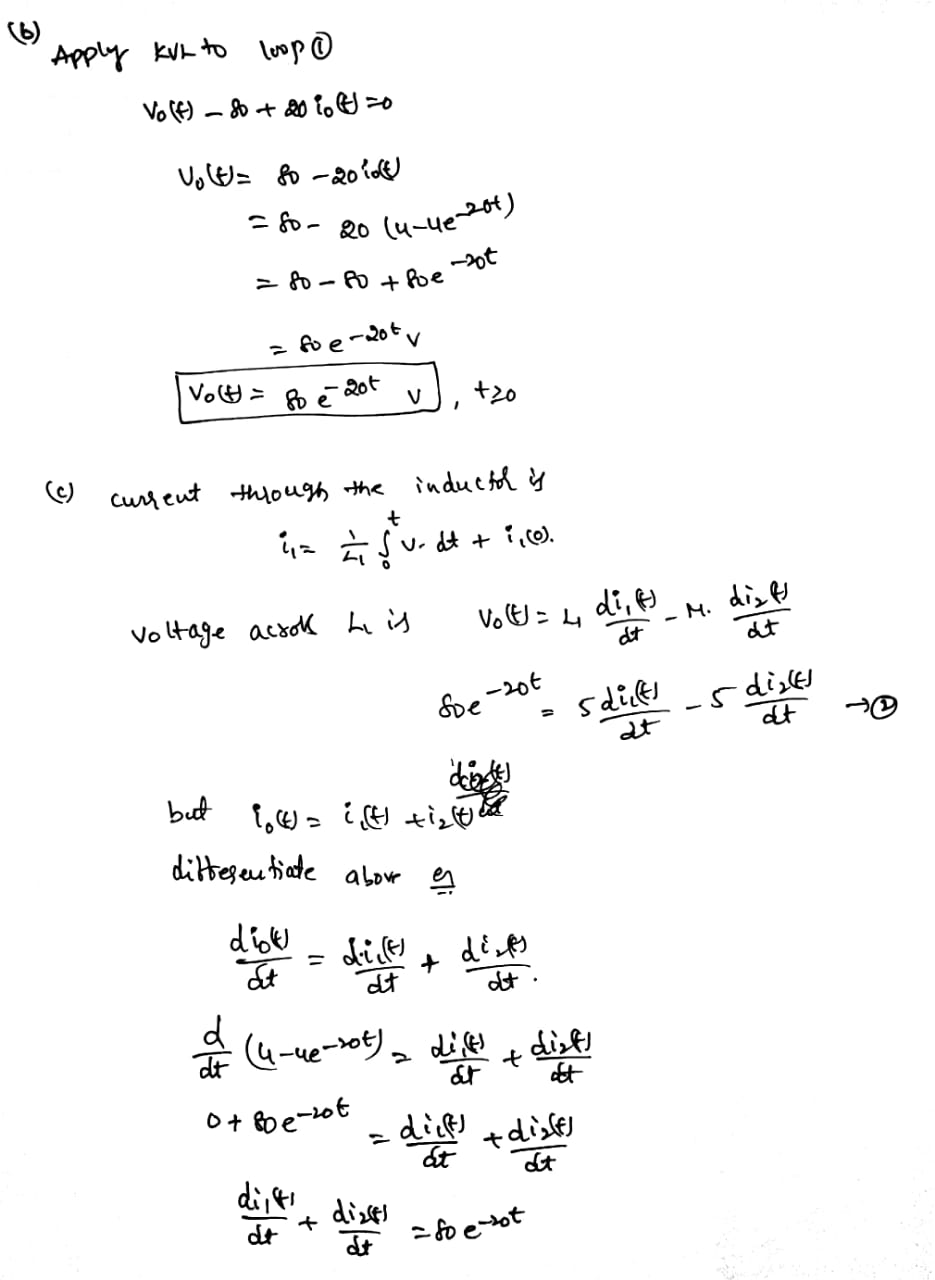 (b)
Apply KVL to loop ①
V₀(t) − 80 + 20 i₀(t) = 0
V₀(t) = 80 − 20 i₀(t)
= 80 − 20 (4−4e^−20t)
= 80 − 80 + 80e^−20t
= 80 e^−20t V
V₀(t) = 80 e^−20t V , t≥0
(c) current through the inductor is
i₁ = 1/L₁ ∫₀ᵗ v. dt + i₁(0).
voltage across L₁ is V₀(t) = L₁ di₁(t)/dt − M. di₂(t)/dt
80e^−20t = 5 di₁(t)/dt − 5 di₂(t)/dt → ②
but i₀(t) = i₁(t) + i₂(t)
differentiate above eq
di₀(t)/dt = di₁(t)/dt + di₂(t)/dt .
d/dt (4−4e^−20t) = di₁(t)/dt + di₂(t)/dt
0 + 80e^−20t = di₁(t)/dt + di₂(t)/dt
di₁(t)/dt + di₂(t)/dt = 80 e^−20t